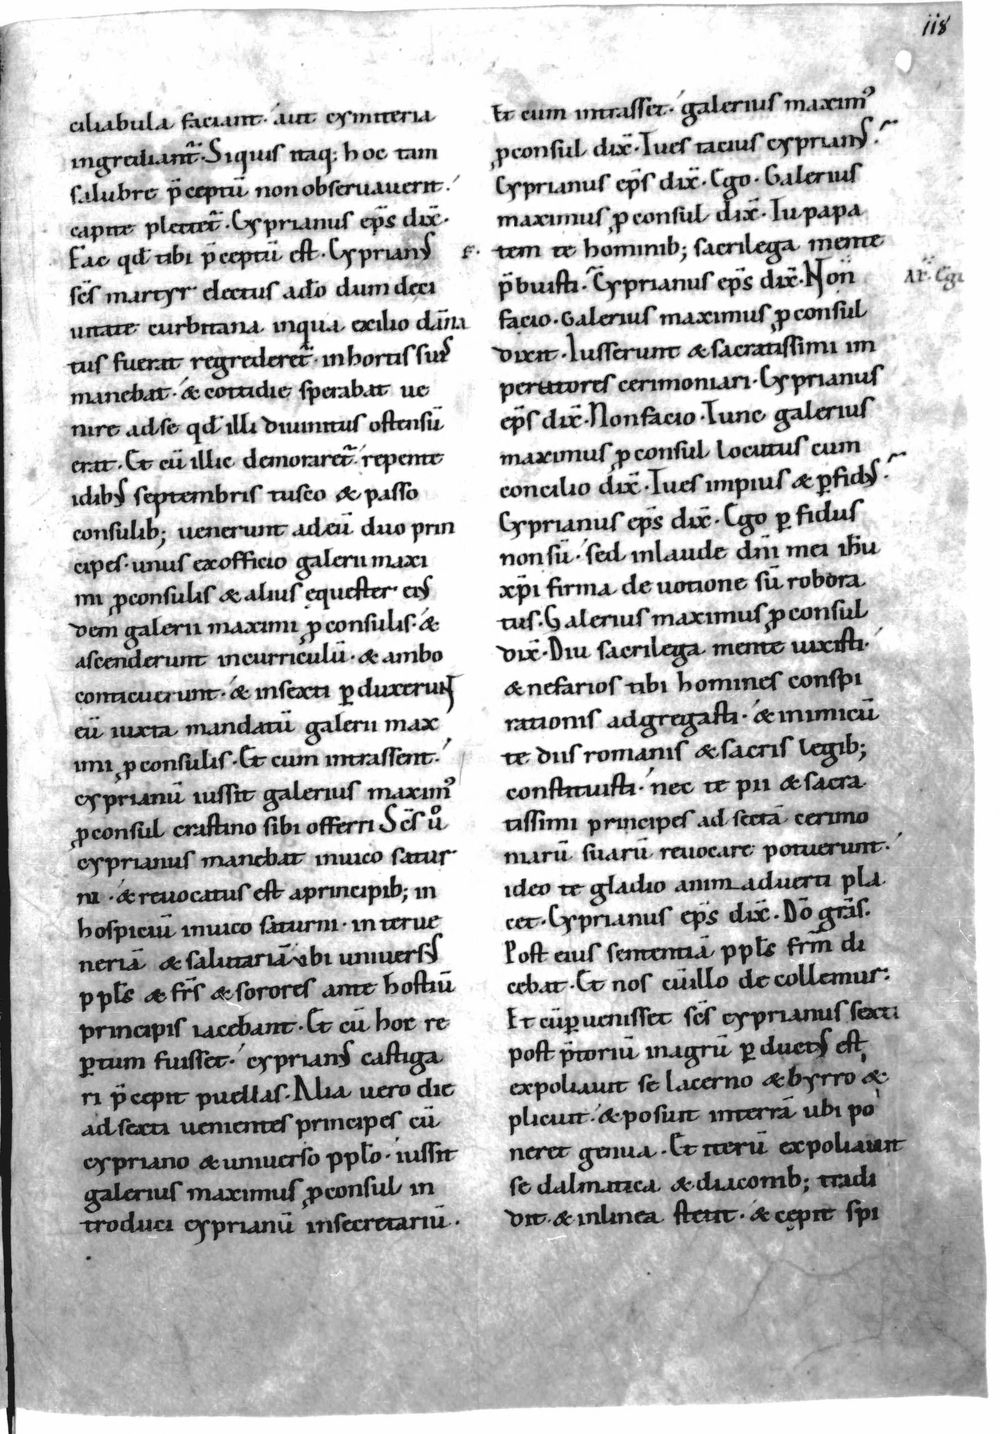 118
ciliabula faciant· aut cymiteria
ingrediant᷑· Siquis itaq; hoc tam
salubre p̄ceptū non obseruauerit·
capite plectet᷑· Cyprianus ep̄s dix̄·
Fac qđ tibi p̄ceptū est· Cyprianꝰ
sc̄s martyr electus a dō dum de ci
uitate curbitana inqua exilio dāna
tus fuerat regrederet᷑· inhortis suis
manebat· & cottidie sperabat ue
nire adse qđ illi diuinitus ostensū
erat· Et cū illic demoraret᷑· repente
idibꝰ septembris tusco & passo
consulib; uenerunt adeū duo prin
cipes· unus exofficio galerii maxi
mi ꝓconsulis & alius equester eiꝰ
dem galerii maximi ꝓconsulis· &
ascenderunt incurriculū· & ambo
conticuerunt· & insexti ꝑduxeruN
eū iuxta mandatū galerii max
imi ꝓconsulis· Et cum intrassent·
cyprianū iussit galerius maximꝰ
ꝓconsul crastino sibi offerri Sc̄s u͛o
cyprianus manebat inuico satur
ni· & reuocatus est aprincipib; in
hospiciū inuico saturni· interue
neriā & salutariā ubi uniuersꝰ
ppls̄ & fr̄s & sorores ante hostiū
principis iacebant· Et cū hoc re
ꝑtum fuisset· cyprianꝰ castiga
ri p̄cepit puellas· Alia uero die
adsexti uenientes principes cū
cypriano & uniuerso pplo· iussit
galerius maximus ꝓconsul in
troduci cyprianū insecretariū·
Et cum intrasset· galerius maximꝰ
ꝓconsul dix̄· Tu es tacius cyprianꝰ·
Cyprianus ep̄s dix̄· Ego· Galerius
maximus ꝓconsul dix̄· Tu papa
tem te hominib; sacrilega mente
p̄buisti· Cyprianus ep̄s dix̄· Non̄
facio· Galerius maximus ꝓconsul
dixit· Iusserunt & sacratissimi im
peratores cerimoniari· Cyprianus
ep̄s dix̄· Nonfacio· Tunc galerius
maximus ꝓconsul locutus cum
concilio dix̄· Tu es impius & ꝑfidꝰ·
Cyprianus ep̄s dix̄· Ego ꝑfidus
non sū· sed inlaude dn̄i mei ih̄u
xp̄i firma deuotione sū robora
tus· Galerius maximus ꝓconsul
dix̄· Diu sacrilega mente uixisti·
& nefarios tibi homines conspi
rationis adgregasti· & inimicū
te diis romanis & sacris legib;
constituisti· nec te pii & sacra
tissimi principes ad sectā cerimo
niarū suarū reuocare potuerunt·
ideo te gladio animaduerti pla
cet· Cyprianus ep̄s dix̄· Dō grās·
Post eius sententiā pplūs fr̄m di
cebat· Et nos cū illo decollemur·
Et cū ꝑuenisset sc̄s cyprianus sexti
post p̄toriū inagrū ꝑductꝰ est
expoliauit se lacerno & byrro &
plicuit· & posuit interrā ubi po
neret genua· Et iterū expoliauit
se dalmatica & diaconib; tradi
dit· & inlinea stetit· & cępit spi